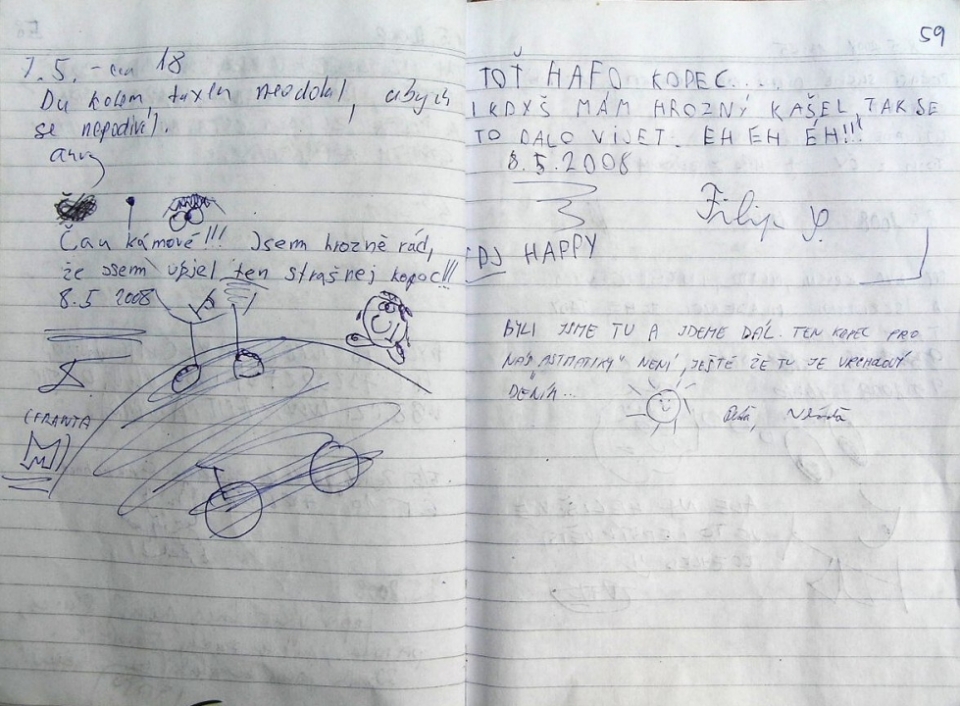 7.5. - 18
Du kolem, taxem neodolal, abych
se nepodíval.
Čau kámové!!! Jsem hrozně rád,
že jsem vyjel ten strašnej kopec!!!
8.5 2008
(FRANTA
59
TOŤ HAFO KOPEC...
I KDYŠ MÁM HROZNÝ KAŠEL TAK SE
TO DALO VIJET. EH EH ÉH!!!
8.5.2008
Filip
DJ HAPPY
BYLI JSME TU A JDEME DÁL. TEN KOPEC PRO
NÁS „ASTMATIKY" NENÍ, JEŠTĚ ŽE TU JE VRCHOLOVÝ
DENÍK...